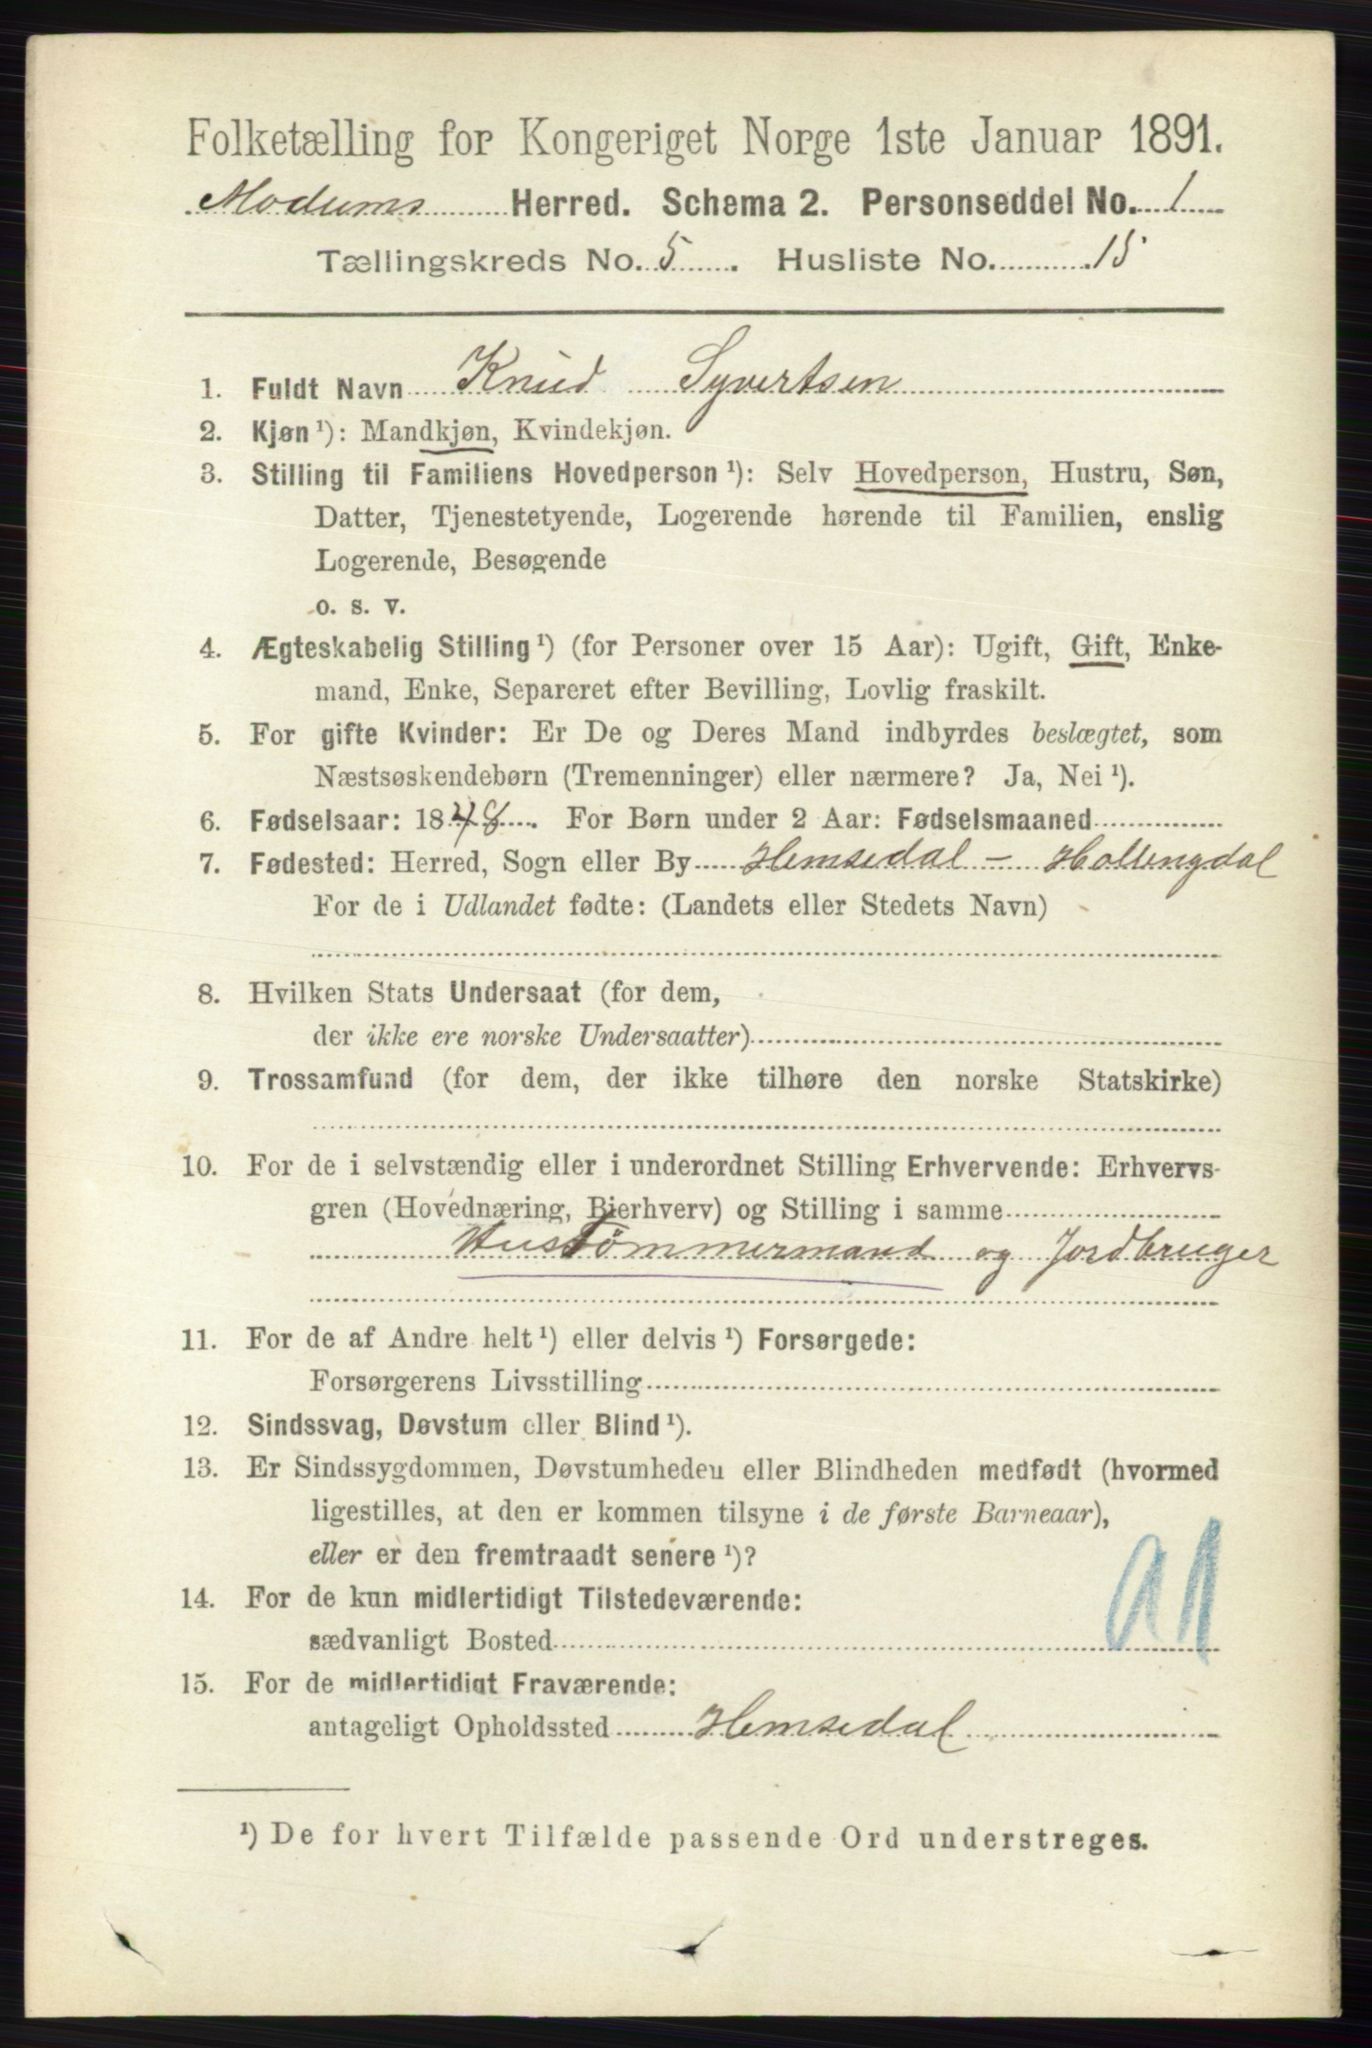 Folketælling for Kongeriget Norge 1ste Januar 1891.
Modums Herred. Schema 2. Personseddel No. 1
Tællingskreds No. 5. Husliste No. 15
1. Fuldt Navn Knud Syvertsen
2. Kjøn ¹): Mandkjøn, Kvindekjøn.
3. Stilling til Familiens Hovedperson ¹): Selv Hovedperson, Hustru, Søn,
Datter, Tjenestetyende, Logerende hørende til Familien, enslig
Logerende, Besøgende
o. s. v.
4. Ægteskabelig Stilling ¹) (for Personer over 15 Aar): Ugift, Gift, Enke-
mand, Enke, Separeret efter Bevilling, Lovlig fraskilt.
5. For gifte Kvinder: Er De og Deres Mand indbyrdes beslægtet, som
Næstsøskendebørn (Tremenninger) eller nærmere? Ja, Nei ¹).
6. Fødselsaar: 1848. For Børn under 2 Aar: Fødselsmaaned
7. Fødested: Herred, Sogn eller By Hemsedal - Hallingdal
For de i Udlandet fødte: (Landets eller Stedets Navn)
8. Hvilken Stats Undersaat (for dem,
der ikke ere norske Undersaatter)
9. Trossamfund (for dem, der ikke tilhøre den norske Statskirke)
10. For de i selvstændig eller i underordnet Stilling Erhvervende: Erhvervs-
gren (Hovednæring, Bierhverv) og Stilling i samme
Hustømmermand og Jordbruger
11. For de af Andre helt ¹) eller delvis ¹) Forsørgede:
Forsørgerens Livsstilling
12. Sindssvag, Døvstum eller Blind ¹).
13. Er Sindssygdommen, Døvstumheden eller Blindheden medfødt (hvormed
ligestilles, at den er kommen tilsyne i de første Barneaar),
eller er den fremtraadt senere ¹)?
14. For de kun midlertidigt Tilstedeværende:
sædvanligt Bosted
15. For de midlertidigt Fraværende:
antageligt Opholdssted Hemsedal
¹) De for hvert Tilfælde passende Ord understreges.